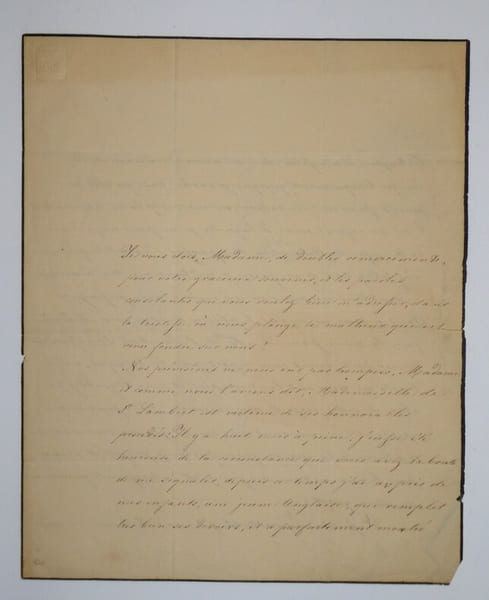 Je vous dois, Madame, de doubles remerciements,
pour votre gracieux souvenir, et les paroles
que vous voulez bien m'adresser, dans
la tristesse où nous plonge le malheur qui est
venu fondre sur nous.
Nos prévisions ne nous ont pas trompées, Madame
et comme nous l'avions dit, Mademoiselle de
St Lambert est victime de ses honorables
Il y a huit mois à peine, j'eusse été
heureuse de la circonstance que vous avez la bonté
de me signaler, depuis ce temps j'ai auprès de
mes enfants, une jeune Anglaise, qui remplit
très bien ses devoirs, et a parfaitement